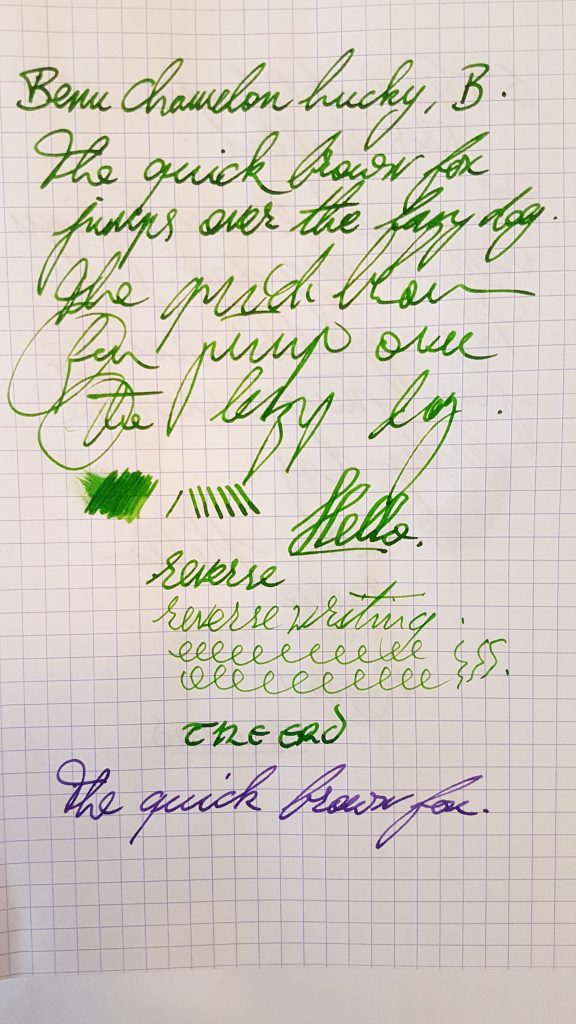 Benu Chamelon Lucky, B.
The quick brown fox
jumps over the lazy dog.
The quick brown
fox jump over
the lazy dog.
Hello.
reverse
reverse writing.
THE END
The quick brown fox.